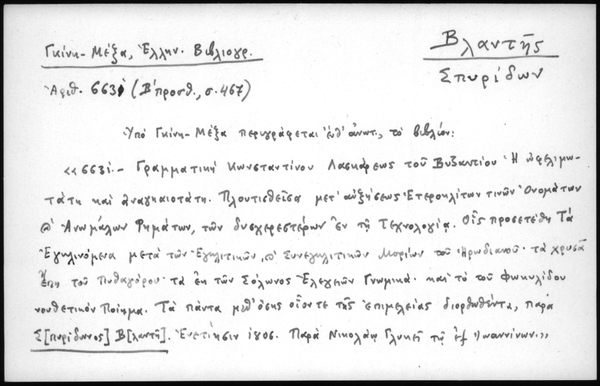 Γκίνη-Μέξα, Ἑλλην. Βιβλιογρ.
Βλαντῆς
Σπυρίδων
Ἀριθ. 663i (Β' προσθ., σ. 467)
Ὑπὸ Γκίνη-Μέξα περιγράφεται ἐνθ' ἀνωτ., τὸ βιβλίον:
«663i.- Γραμματικὴ Κωνσταντίνου Λασκάρεως τοῦ Βυζαντίου Ἡ ὠφελιμω-
τάτη καὶ ἀναγκαιοτάτη. Πλουτισθεῖσα μετ' αὐξήσεως Ἑτεροκλίτων τινῶν Ὀνομάτων
Ἀνωμάλων Ῥημάτων, τῶν δυσχερεστέρων ἐν τῇ Τεχνολογίᾳ. Οἷς προσετέθη Τὰ
Ἐγκλινόμενα μετὰ τῶν Ἐγκλιτικῶν, Συνεγκλιτικῶν Μορίων τοῦ Ἡρωδιανοῦ· τὰ χρυσᾶ
Ἔπη τοῦ Πυθαγόρου· τὰ ἐκ τῶν Σόλωνος Ἐλεγειῶν Γνωμικά· καὶ τὸ τοῦ Φωκυλίδου
νουθετικὸν Ποίημα. Τὰ πάντα μεθ' ὅσης οἷόντε τῆς ἐπιμελείας διορθωθέντα, παρὰ
Σ[πυρίδωνος] Β[λαντῆ]. Ἐνετίῃσιν 1806. Παρὰ Νικολάῳ Γλυκεῖ τῷ ἐξ Ἰωαννίνων.»